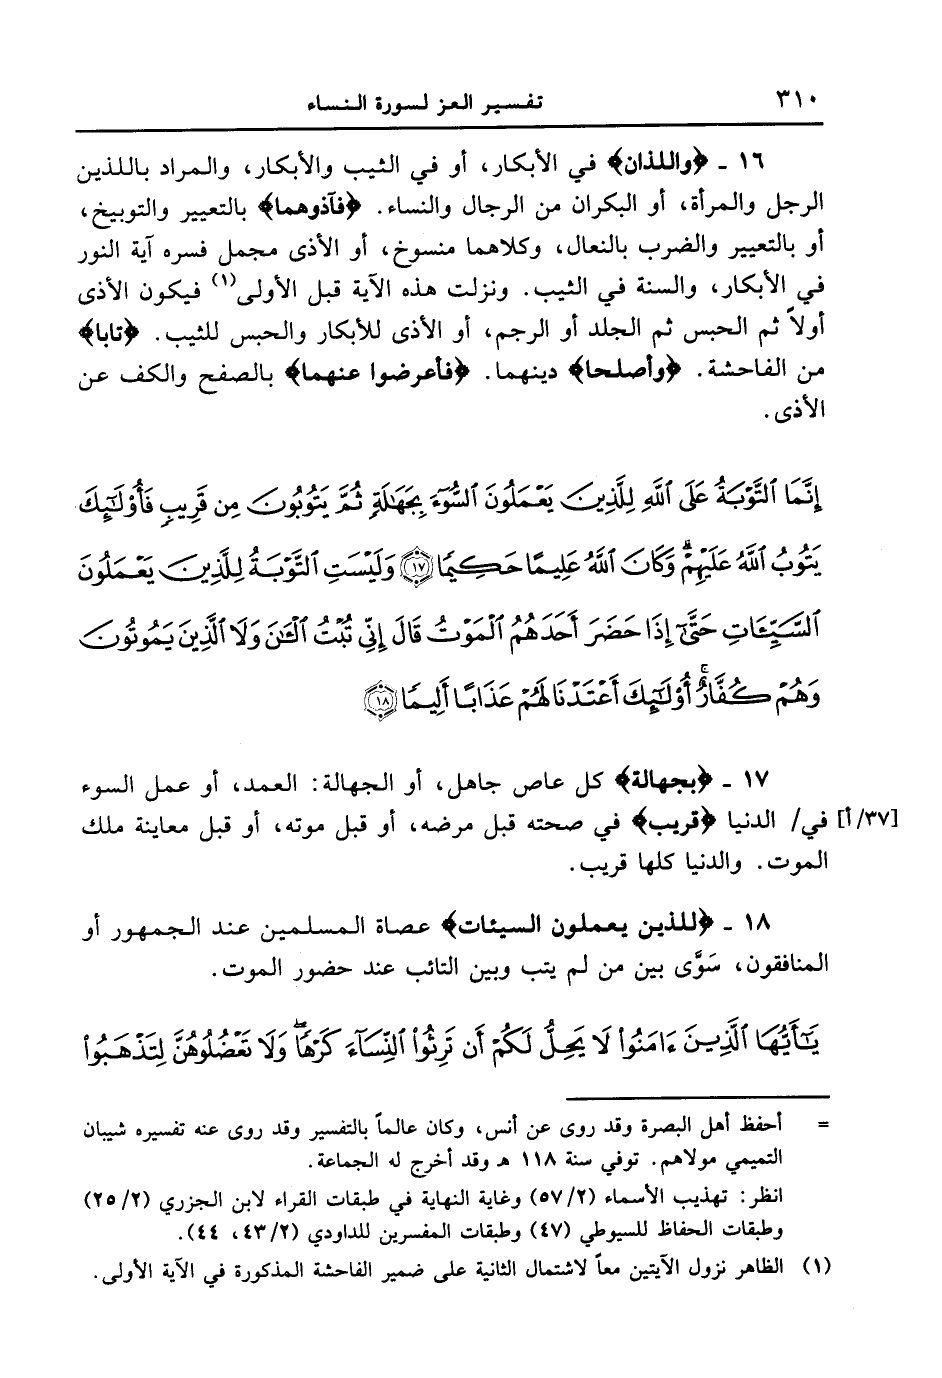 ٣١٠ تفسير العز لسورة النساء
١٦ ـ ﴿واللذان﴾ في الأبكار، أو في الثيب والأبكار، والمراد باللذين
الرجل والمرأة، أو البكران من الرجال والنساء. ﴿فآذوهما﴾ بالتعيير والتوبيخ،
أو بالتعيير والضرب بالنعال، وكلاهما منسوخ، أو الأذى مجمل فسره آية النور
في الأبكار، والسنة في الثيب. ونزلت هذه الآية قبل الأولى(١) فيكون الأذى
أولاً ثم الحبس ثم الجلد أو الرجم، أو الأذى للأبكار والحبس للثيب. ﴿تابا﴾
من الفاحشة. ﴿وأصلحا﴾ دينهما. ﴿فأعرضوا عنهما﴾ بالصفح والكف عن
الأذى.
إِنَّمَا ٱلتَّوْبَةُ عَلَى ٱللَّهِ لِلَّذِينَ يَعْمَلُونَ ٱلسُّوٓءَ بِجَهَٰلَةٍ ثُمَّ يَتُوبُونَ مِن قَرِيبٍ فَأُوْلَٰٓئِكَ
يَتُوبُ ٱللَّهُ عَلَيْهِمْۗ وَكَانَ ٱللَّهُ عَلِيمًا حَكِيمًا ﴿١٧﴾ وَلَيْسَتِ ٱلتَّوْبَةُ لِلَّذِينَ يَعْمَلُونَ
ٱلسَّيِّـَٔاتِ حَتَّىٰٓ إِذَا حَضَرَ أَحَدَهُمُ ٱلْمَوْتُ قَالَ إِنِّى تُبْتُ ٱلْـَٰٔنَ وَلَا ٱلَّذِينَ يَمُوتُونَ
وَهُمْ كُفَّارٌۚ أُوْلَٰٓئِكَ أَعْتَدْنَا لَهُمْ عَذَابًا أَلِيمًا ﴿١٨﴾
١٧ ـ ﴿بجهالة﴾ كل عاص جاهل، أو الجهالة: العمد، أو عمل السوء
[٣٧/أ] في/ الدنيا ﴿قريب﴾ في صحته قبل مرضه، أو قبل موته، أو قبل معاينة ملك
الموت. والدنيا كلها قريب.
١٨ ـ ﴿للذين يعملون السيئات﴾ عصاة المسلمين عند الجمهور أو
المنافقون، سَوَّى بين من لم يتب وبين التائب عند حضور الموت.
يَٰٓأَيُّهَا ٱلَّذِينَ ءَامَنُواْ لَا يَحِلُّ لَكُمْ أَن تَرِثُواْ ٱلنِّسَآءَ كَرْهًاۖ وَلَا تَعْضُلُوهُنَّ لِتَذْهَبُواْ
= أحفظ أهل البصرة وقد روى عن أنس، وكان عالماً بالتفسير وقد روى عنه تفسيره شيبان
التميمي مولاهم. توفي سنة ١١٨ هـ وقد أخرج له الجماعة.
انظر: تهذيب الأسماء (٥٧/٢) وغاية النهاية في طبقات القراء لابن الجزري (٢٥/٢)
وطبقات الحفاظ للسيوطي (٤٧) وطبقات المفسرين للداودي (٤٣/٢، ٤٤).
(١) الظاهر نزول الآيتين معاً لاشتمال الثانية على ضمير الفاحشة المذكورة في الآية الأولى.